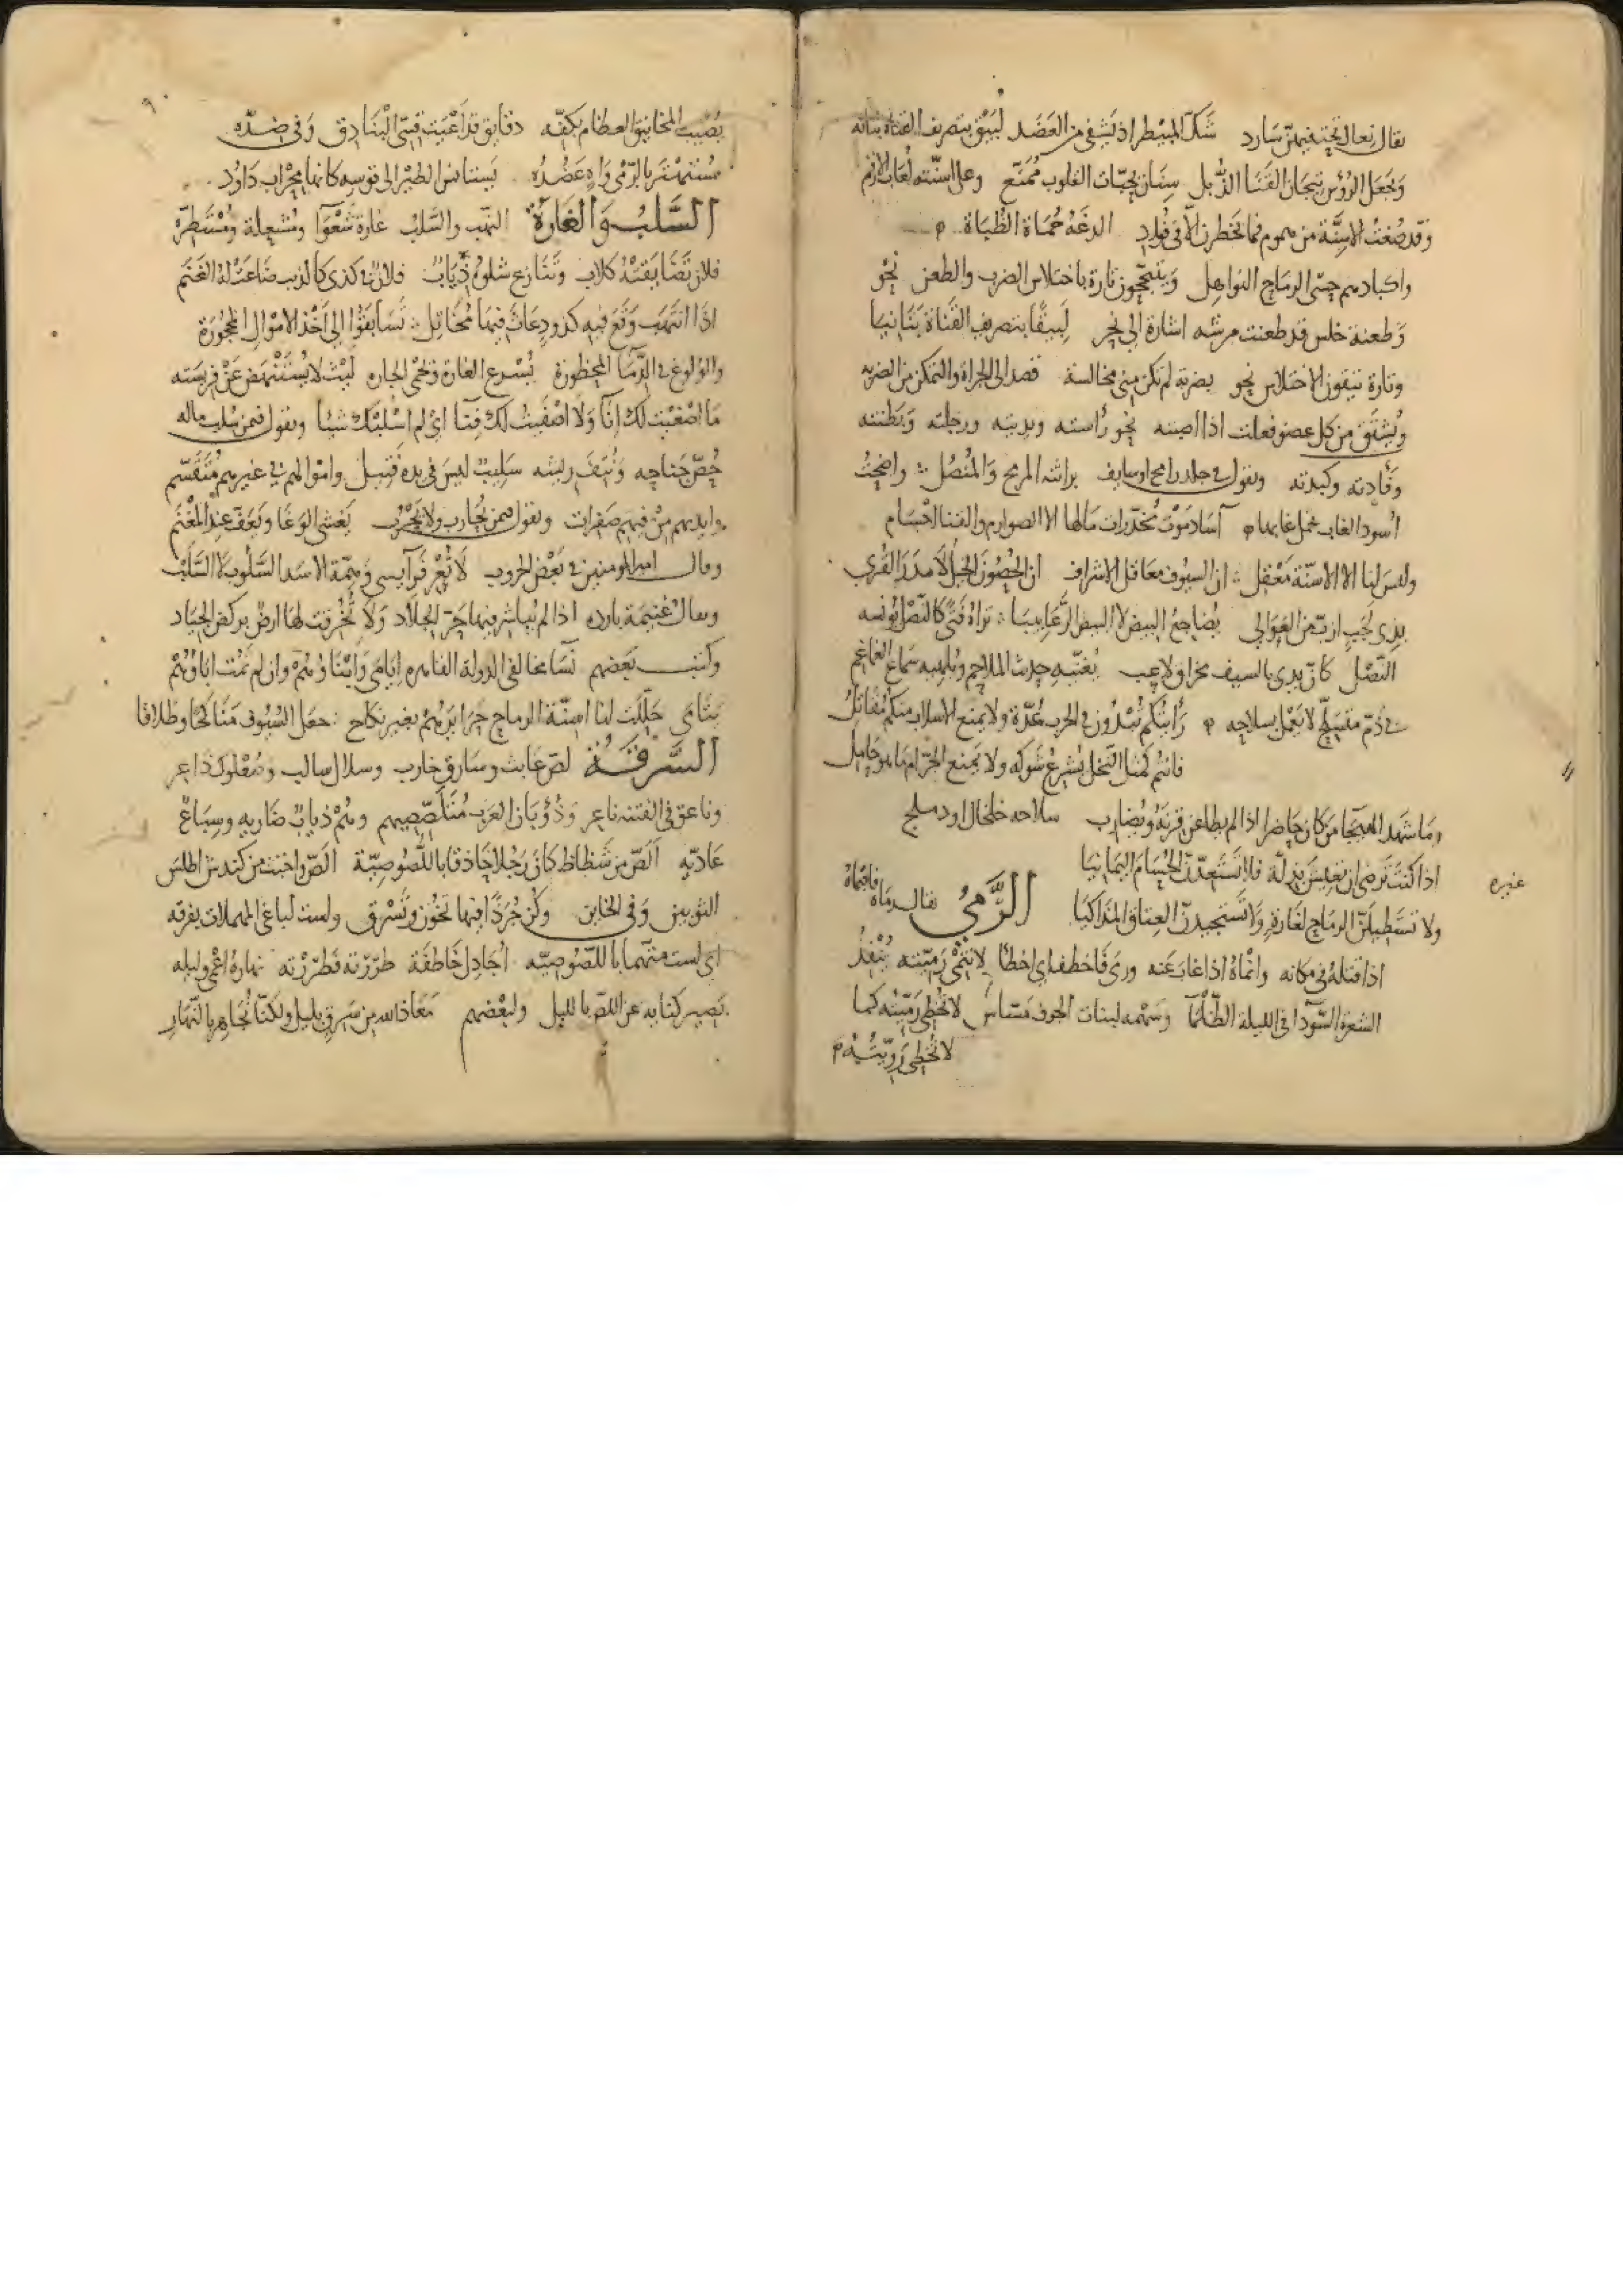 يقال نعال تحته فيهن سارد شك المبيطر اذ يشفي من العضد لبيق بتصريف القناة بنانه
وتجعل الرؤس تيجان القنا الذبل سنان بحبات القلوب ممنع وعلى اسنته لعاب الارقم
وقد صغت الاسنة من هموم فما يخطرن الا في فؤاد الدغه حماة الظباة
واكبادهم حشى الرماح النواهل ويتبجحون تارة باختلاس الضرب والطعن نحو
وطعنة خلس قد طعنت مرشه اشارة الى نحر لبيقا بتصريف القناة بنانيا
وتارة ينفون الاختلاس نحو بضربة لم تكن مني مخالسة قصد الى الجراة والتمكن من الضربه
ويشتق من كل عضو فعلت اذا اصبته نحو رأسته ويديته ورجلته وبطنته
وفأدته وكبدته وتقول في جلد رامح اوسايف براثنه المريح والمنصل واضحت
اسود الغاب تحمل غابها آساد موت مخدرات مالها الا الصوارم والقنا اجسام
وليس لنا الا الاسنة معقل ان السيوف معاقل الاشراف ان الحصون الخيل لا مدر القرى
بذي لجب ازب من العوالي يضاجع البيض لا البيض الرعابيبا تراه فتى كالنصل يؤنسه
النصل كأن يدي بالسيف مخراق لاعب يغنيه حدث الملاحم ويلهيه سماع الغماغم
في ذم متسلح لا يعمل بسلاحه رأيتكم تبدون في الحرب عدة ولا يمنع الاسلاب منكم مقاتل
فانتم كمثل النخل يشرع شوكه ولا يمنع الخرام ما هو حامل
وما شهد الهيجا من كان حاضرا اذا لم يطاعن قرنه ويضارب سلاحه خلخال او دملج
اذا كنت ترضى ان تعيش بذلة فلا تستعدن الحسام اليمانيا
غيره
ولا تستطيلن الرماح لغارة ولا تستجيدن العتاق المذاكيا الرمي يقال رماه فاقماه
اذا قتله في مكانه وانماه اذا غاب عنه ورمى فاخطف اي اخطأ لا تنمى رميته ينفذ
الشعرة السودا في الليلة الظلما وسهمه لبنات الجوف مساس لا تخطي رميته كما
لا تخطي رويته
يصيب المخانيق العظام بكفه دقايق قد اعيت قسي البنادق وفي ضده
مستهتر بالرمي واه عضده يستانس الطير الى قوسه كانها محراب داود
السلب والغارة النهب والسلب غارة شعوا ومشعلة ومستطرة
فلان تضايقته كلاب وتنازع شلوه ذياب فلان في كذى كالذيب ضاعت له الغنم
اذا انتهب وقع فيه كذوذ عاث فيها مخاتل تسابقوا الى اخذ الاموال المحجورة
والولوغ في الدما المحظورة يسرع الغارة ويحمي الجاره ليث لا يستنهض عن فريسته
ما اصغيت لك انا ولا اصفيت لك فنا اي لم اسلبك شيئا وتقول فمن سلب ماله
حص جناحه ونتف ريشه سليب ليس في يده فتيل واموالهم في غيرهم متقسم
وايديهم من فيهم صفرات وتقول فمن يحارب ولا يحرب يغشى الوغا ويعف عند المغنم
وقال امير المومنين في بعض الحروب لا تعر فرآيسي وهمة الاسد السلوب لا السلب
ويقال غنيمة بارده اذا لم يباشر فيها حر الجلاد ولا تخرقت لها ارض بركض الجياد
وكتب بعضهم نسا مخالفي الدولة القاهره ايامى وابناوهم وان لم تمت اباؤهم
يتامى حللت لنا اسنة الرماح حرايرهم بغير نكاح جعل السيوف مناكحا وطلاقا
السرقة لص عابث وسارق خارب وسلال سالب وصعلوك ذاعر
وناعق في الفتنه ناعر وذؤبان العرب متلصصيهم وهم ذياب ضاريه وسباع
عاديه الص من شظاظ كان رجلا حاذقا باللصوصية الص واخبث من كندش اطلس
الثوبين وفي الخاين وكن جرذا فيها تخون وتسرق ولست لباغي المهملات بفرقه
اي لست متهما باللصوصيه اجادل خاطفة طررته فطررته نهاره اعمى وليله
بصير كنايه عن اللص بالليل ولبعضهم معاذ الله من سرق بليل ولكنا نجاهر بالنهار